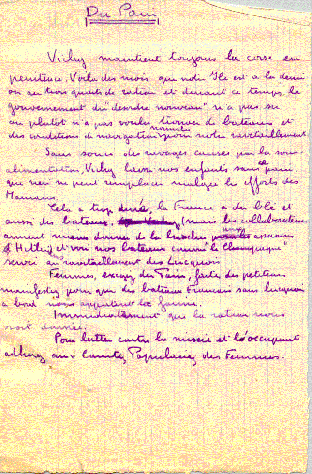 Du Pain
Vichy maintient toujours la corse en
pénitence. Voila des mois que nous
ou au trois quarts de ration et durant ce temps le
gouvernement du "désordre nouveau" n'a pas su
ou plutôt n'a pas voulu trouver de bateaux et
des conditions de navigation normale pour notre ravitaillement
Sans souci des ravages causés par la sous-
alimentation, Vichy laisse nos enfants sans pain
que rien ne peut remplacer malgré les efforts des
Mamans.
Cela a trop duré, la France a du blé et
aussi des bateaux. (mais les collaborateurs
aiment mieux donner de la
d'Hitler) et voir nos bateaux comme le "Champagne"
servir au ravitaillement des
Femmes, exigez du Pain, faites des petites
manifestations pour que des bateaux Français sans
à bord nous apportent la farine.
Immédiatement que la ration nous
soit donnée.
Pour lutter contre la misère et l'occupant
adhérez aux Comités Populaires des Femmes.